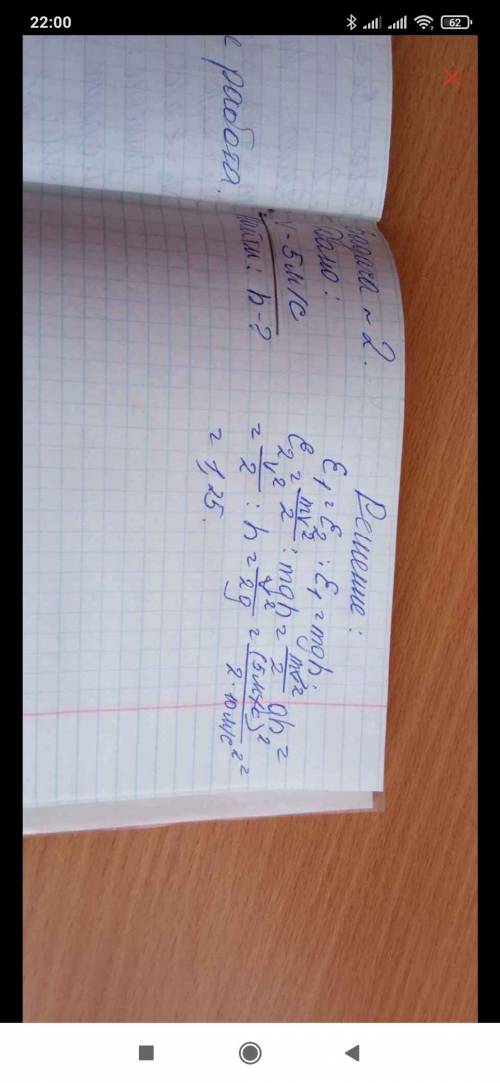 22:00
62
работа.
Задача ~ 2.
Дано:
V - 5 м/с
Найти: h - ?
Решение:
E₁ = E₂ ; E₁ = mgh;
E₂ = mv²/2 ; mgh = mv²/2 gh =
= v²/2 ; h = v²/2g = (5 м/с)²/2·10 м/с² =
= 1,25.